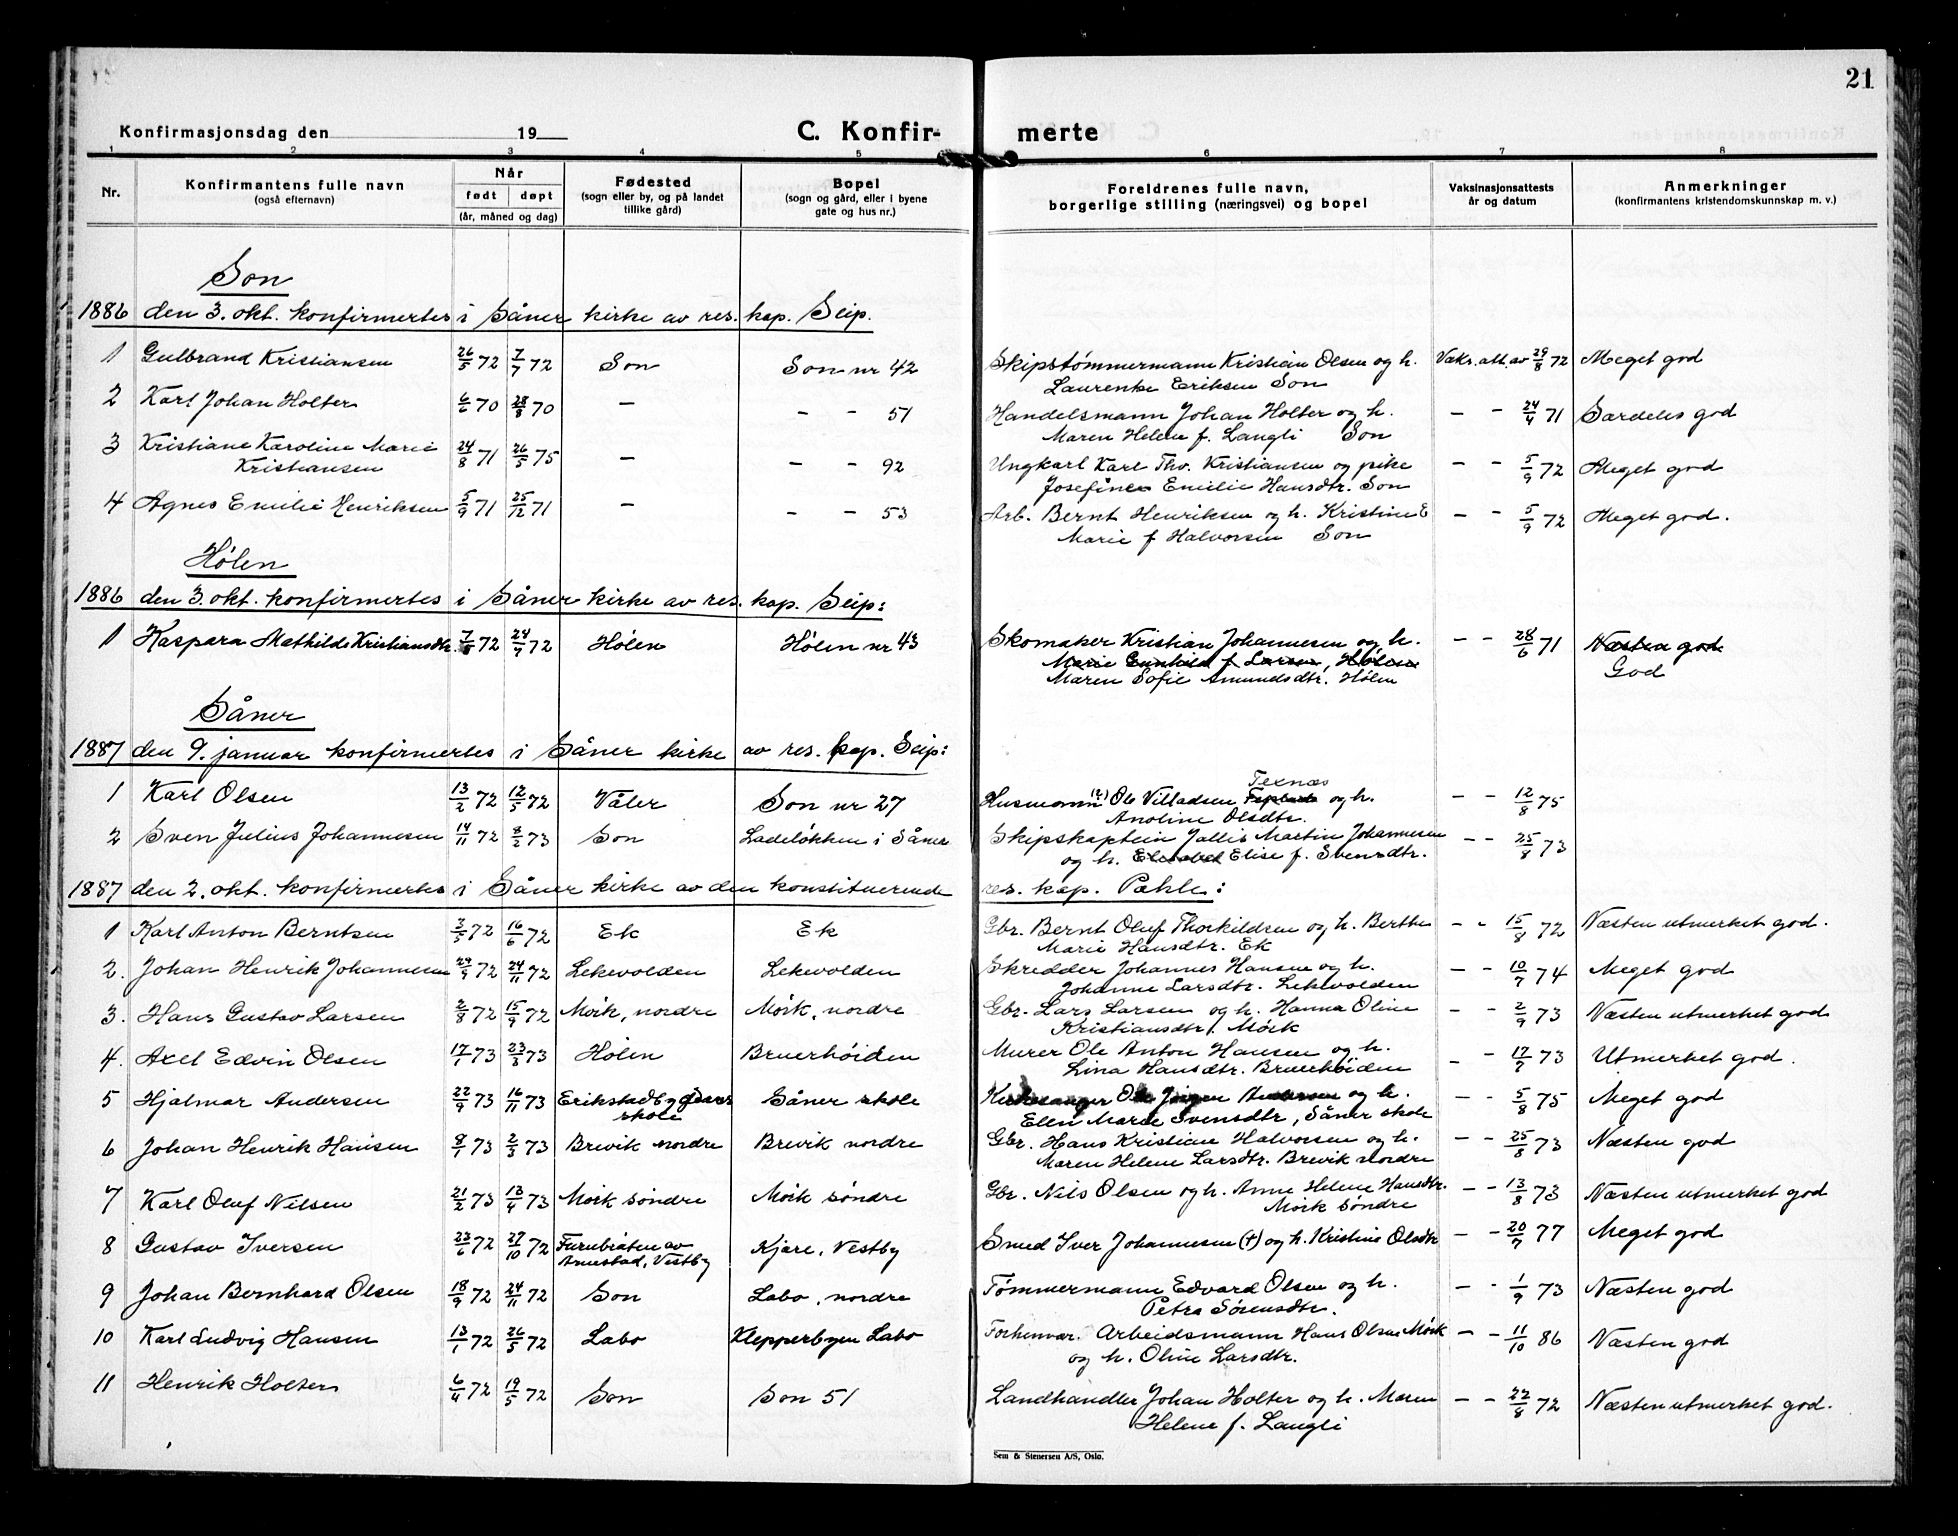 21
Konfirmasjonsdag den 19
C. Konfir- merte
1 2 3 4 5 6 7 8
Nr.
Konfirmantens fulle navn
(også efternavn)
Når
født døpt
(år, måned og dag)
Fødested
(sogn eller by, og på landet
tillike gård)
Bopel
(sogn og gård, eller i byene
gate og hus nr.)
Foreldrenes fulle navn,
borgerlige stilling (næringsvei) og bopel
Vaksinasjonsattests
år og datum
Anmerkninger
(konfirmantens kristendomskunnskap m. v.)
Son
1886 den 3. okt. konfirmertes i Såner kirke av res. kap. Seip.
1 Gulbrand Kristiansen 26/5 72 7/7 72 Son Son nr 42 Skipstømmermann Kristian Olsen og h. Vaks. att. av 29/8 72 Meget god
Laurenke Eriksen Son
2 Karl Johan Holter 6/6 70 28/8 70 — — - 51 Handelsmann Johan Holter og h. — - 24/4 71 Særdeles god
Maren Helene f. Langli Son
3 Kristiane Karoline Marie 24/8 71 26/5 75 — — - 92 Ungkarl Karl Thv. Kristiansen og pike — - 5/9 72 Meget god
Kristiansen Josefine Emilie Hansdtr. Son
4 Agnes Emilie Henriksen 5/9 71 25/12 71 — — - 53 Arb. Bernt Henriksen og h. Kristine E — - 5/9 72 Meget god.
Marie f Halvorsen Son
Hølen
1886 den 3. okt. konfirmertes i Såner kirke av res. kap. Seip:
1 Kaspara Mathilde Kristiansdtr. 72 24/7 72 Hølen Hølen nr 43 Skomaker Kristian Johannesen og h. — - 28/6 71 Næsten god
Marie Gunhild f Larsen, Hølen
Maren Sofie Amundsdtr. Hølen God
Såner
1887 den 9. januar konfirmertes i Såner kirke av res. kap. Seip:
Texnæs
1 Karl Olsen 13/2 72 12/5 72 Våler Son nr 27 Husmann Ole Villadsen og h. — - 12/8 75
Anoline Olsdtr.
2 Sven Julius Johannesen 14/11 72 8/2 73 Son Ladeløkken i Såner Skipskaptein Martin Johannesen — - 25/8 73
og h. Elise f. Svensdtr.
1887 den 2. okt. konfirmertes i Såner kirke av den konstituerende res. kap. Pahle:
1 Karl Anton Berntsen 3/5 72 16/6 72 Ek Ek Gbr. Bernt Oluf Thorkildsen og h. Berthe — - 15/8 72 Næsten utmerket god.
Marie Hansdtr. Ek
2. Johan Henrik Johannesen 29/9 72 24/11 72 Lekevolden Lekevolden Skredder Johannes Hansen og h. — - 10/7 74 Meget god
Johanne Larsdtr. Lekevolden
3. Hans Gustav Larsen 2/8 72 15/9 72 Mörk, nordre Mörk, nordre Gbr. Lars Larsen og h. Hanna Oline - - 2/9 73 Næsten utmerket god
Kristiansdtr. Mörk
4. Axel Edvin Olsen 17/1 73 23/3 73 Hølen Bruerhöiden Murer Ole Anton Hansen og h. — - 17/7 73 Utmerket god.
Lina Hansdtr. Bruerhöiden
5 Hjalmar Andersen 22/9 73 16/11 73 Erikstadbygdens Såner skole Kirkesanger Ole Jörgen Andersen og h. — - 5/8 75 Meget god
skole Elen Marie Svensdtr, Såner skole
6 Johan Henrik Hansen 9/1 73 2/3 73 Brevik nordre Brevik nordre Gbr. Hans Kristian Halvorsen og h. — - 25/8 73 Næsten god
Maren Helene Larsdtr. Brevik nordre
7 Karl Oluf Nilsen 21/2 73 13/4 73 Mörk söndre Mörk söndre Gbr. Nils Olsen og h. Anne Helene Hansdtr. — - 13/8 73 Næsten utmerket god
Mörk söndre
8 Gustav Iversen 23/6 72 27/10 72 Furubråten av Kjære, Vestby Smed Iver Johannesen (†) og h. Kristine Olsdtr — - 20/7 77 Meget god
Arnestad, Vestby
9 Johan Bernhard Olsen 18/9 72 24/11 72 Son Labo, nordre Tømmermann Edvard Olsen og h. — - 1/9 73 Næsten god
Petra Sørensdtr.
10 Karl Ludvig Hansen 13/1 72 26/5 72 Labo Klepperbyen Labo Forhenvær. Arbeidsmann Hans Olsen Mörk — - 11/10 86 Næsten god
og h. Oline Larsdtr.
11 Henrik Holter 6/4 72 19/5 72 Son Son 51 Landhandler Johan Holter og h. Maren — - 22/8 72 Næsten utmerket god.
Helene f. Langli
Sem & Stenersen A/S, Oslo.